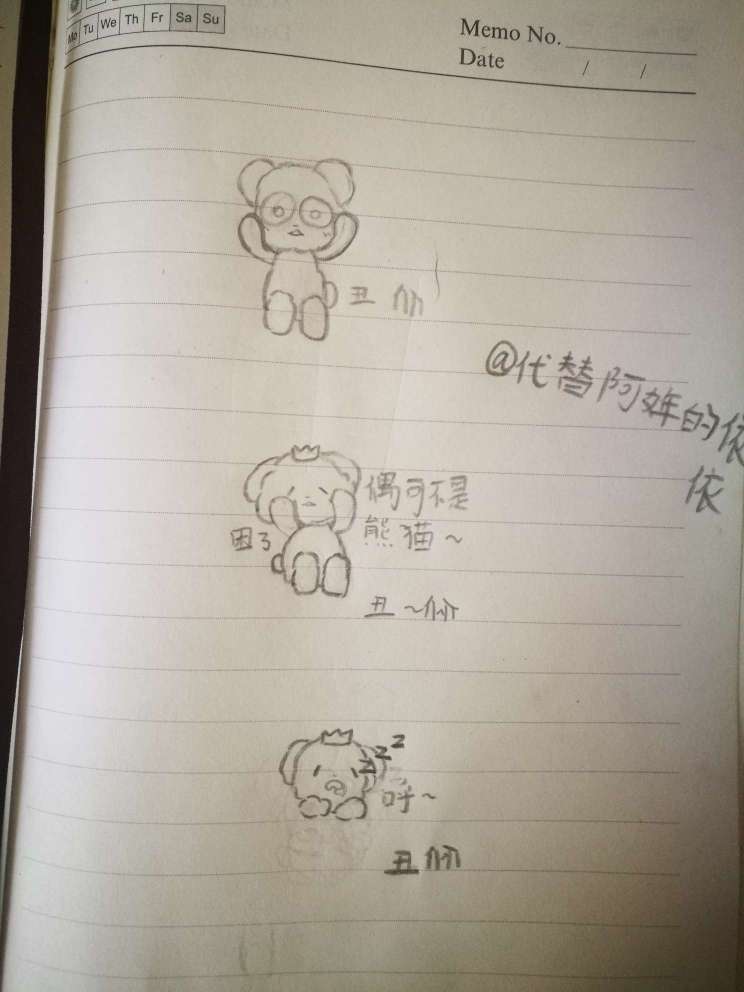 Mo Tu We Th Fr Sa Su
Memo No.
Date / /
丑
@代替阿姩的依
依
偶可不是
熊猫~
困了
丑~
z z z
呼~
丑